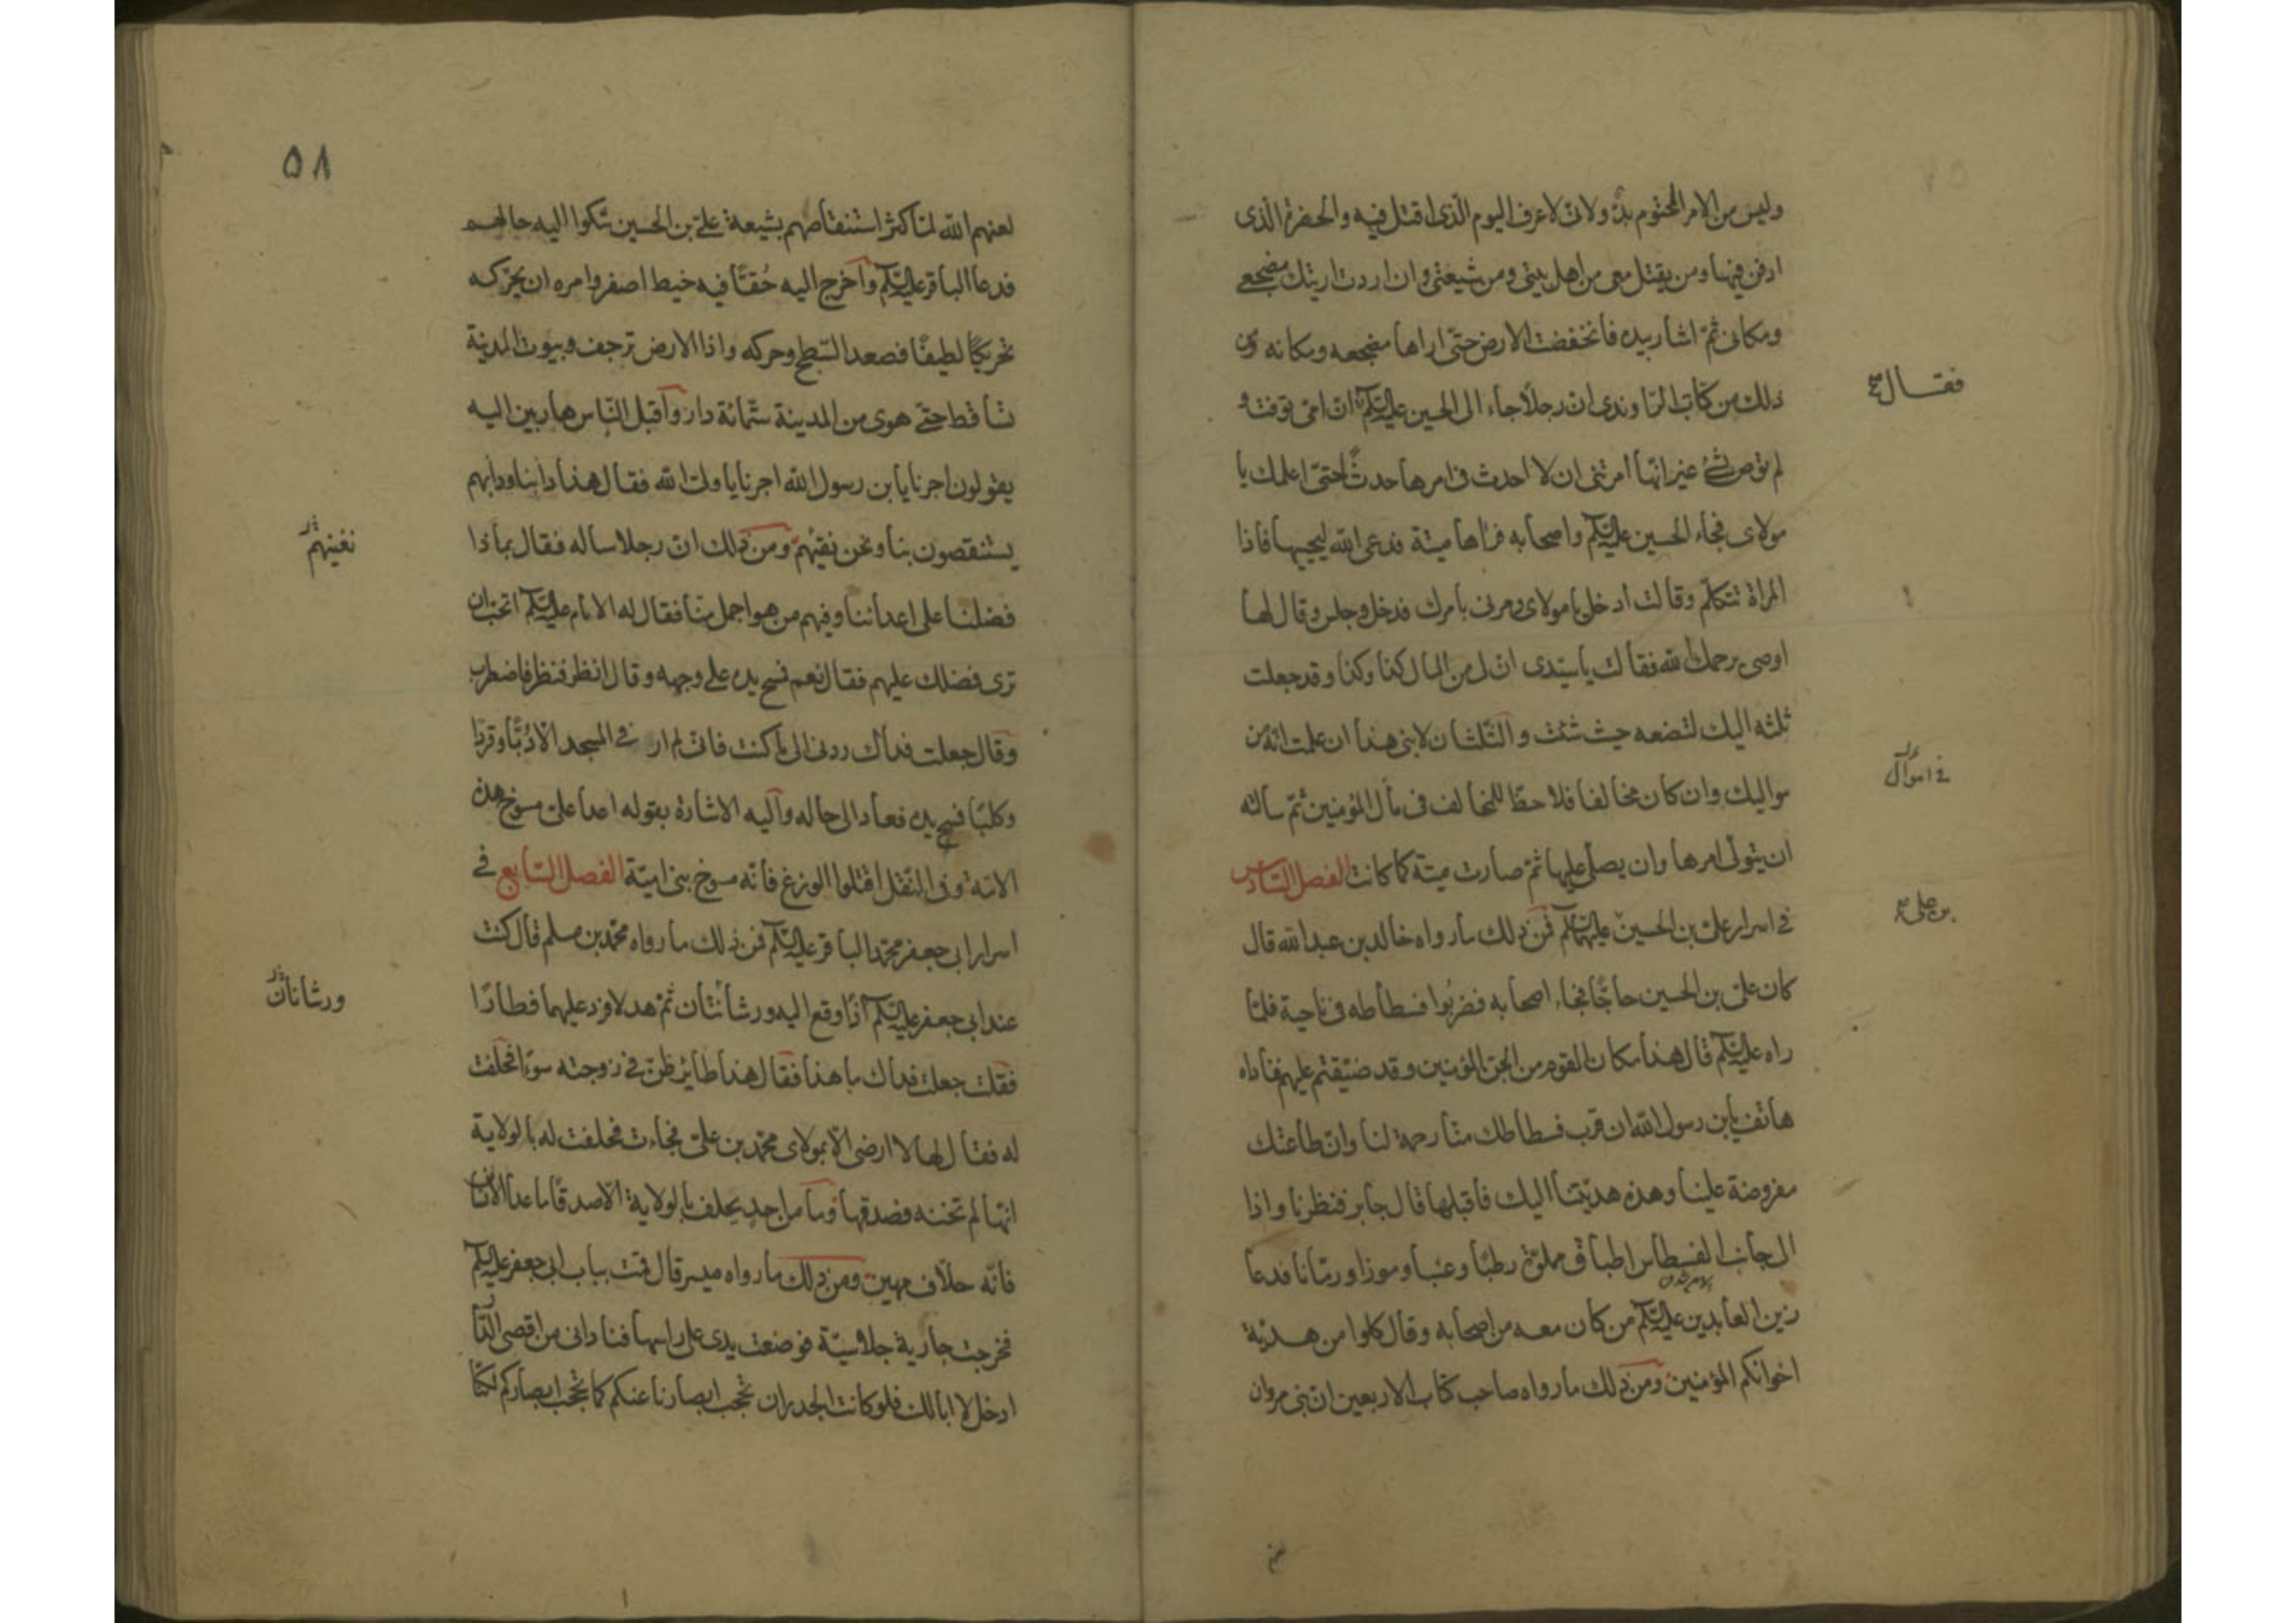 وليس من الامر المحتوم بدّ ولانّى لاعرف اليوم الّذى اقتل فيه والحفرة الّذى
ادفن فيها ومن يقتل معى من اهل بيتى ومن شيعتى وان اردت اريتك مضجعى
ومكانى ثمّ اشار بيده فانخفضت الارض حتّى اراها مضجعه ومكانه ومن
ذلك من كتاب الرّاوندى انّ رجلاً جاء الى الحسين عليه السّلم انّ امّى توفّت و
فقال
لم توص بشئ غير انّها امرتنى ان لا احدث فى امرها حدثًا حتّى اعلمك يا
مولاى فجاء الحسين عليه السّلم واصحابه فراها ميتة فدعى الله ليحييها فاذا
المراة تتكلّم وقالت ادخل يا مولاى ومرنى بامرك فدخل وجلس وقال لها
اوصى يرحمك الله فقالت يا سيّدى انّ لى من المال كذا وكذا وقد جعلت
ثلثه اليك لتضعه حيث شئت والثّلثان لابنى هذا ان علمت انّه من
مواليك وان كان مخالفا فلا حظّ للمخالف فى مال المؤمنين ثمّ سالته
فى اموال
ان يتولّى امرها وان يصلّى عليها ثمّ صارت ميتة كما كانت الفصل السّادس
فى اسرار علىّ بن الحسين عليهما السّلم فمن ذلك ما رواه خالد بن عبد الله قال
بن على
كان علىّ بن الحسين حاجًّا فجاء اصحابه فضربوا فسطاطه فى ناحية فلمّا
راه عليه السّلم قال هذا مكان القوم من الجنّ المؤمنين وقد ضيّقتم عليهم فناداه
هاتف يابن رسول الله ان قرب فسطاطك منّا رحمة لنا وانّ طاعتك
مفروضة علينا وهذه هديّتنا اليك فاقبلها قال جابر فنظرنا واذا
الى جانب الفسطاس اطباق مملوّة رطبًا وعنبا وموزا ورمّانا فدعا
زين العابدين عليه السّلم من كان معه من اصحابه وقال كلوا من هديّة
اخوانكم المؤمنين ومن ذلك ما رواه صاحب كتاب الاربعين انّ بنى مروان
٥٨
لعنهم الله لمّا كثر استنقاصهم بشيعة علىّ بن الحسين شكوا اليه حالهم
فدعا الباقر عليه السّلم واخرج اليه حُقًّا فيه خيط اصفر وامره ان يحرّكه
تحريكًا لطيفًا فصعد السّطح وحركه واذا الارض ترجف وبيوت المدينة
تساقط حتّى هوى من المدينة ستّمائة دار واقبل النّاس هاربين اليه
يقولون اجرنا يابن رسول الله اجرنا يا ولىّ الله فقال هذا دأبنا ودأبهم
يستنقصون بنا ونحن نقيهُم ومن ذلك انّ رجلا ساله فقال بماذا
نفنيهم
فضلنا على اعدائنا وفيهم من هو اجمل منّا فقال له الامام عليه السّلم اتحبّ ان
ترى فضلك عليهم فقال نعم فمسح يده على وجهه وقال انظر فنظر فاضطرب
وقال جعلت فداك ردنى الى ما كنت فانّى لم ار فى المسجد الّا دُبًّا وقردًا
وكلبًا فمسح يده فعاد الى حاله واليه الاشارة بقوله اعداء علىّ مسوخ هذه
الامّة وفى النّقل اقتلوا الوزغ فانّه مسوخ بنى اميّة الفصل السّابع فى
اسرار ابى جعفر محمّد الباقر عليه السّلم فمن ذلك ما رواه محمّد بن مسلم قال كنت
عند ابى جعفر عليه السّلم اذا وقع اليه ورشانتان ثمّ هدلا فرد عليهما فطارا
ورشانان
فقلت جعلت فداك ما هذا فقال هذا طائر ظنّ فى زوجته سوءًا فحلفت
له فقال لها لا ارضى الّا بمولاى محمّد بن علىّ فجاءت فحلفت له بالولاية
انّها لم تخنه فصدقها وما من احد يحلف بالولاية الّا صدق ما عدا الانسان
فانّه حلّاف مهين ومن ذلك ما رواه ميسر قال قمت بباب ابى جعفر عليه السّلم
فخرجت جارية جلاسيّة فوضعت يدى على راسها فنادانى من اقصى الدّار
ادخل لا ابا لك فلو كانت الجدران تحجب ابصارنا عنكم كما تحجب ابصاركم لكنّا